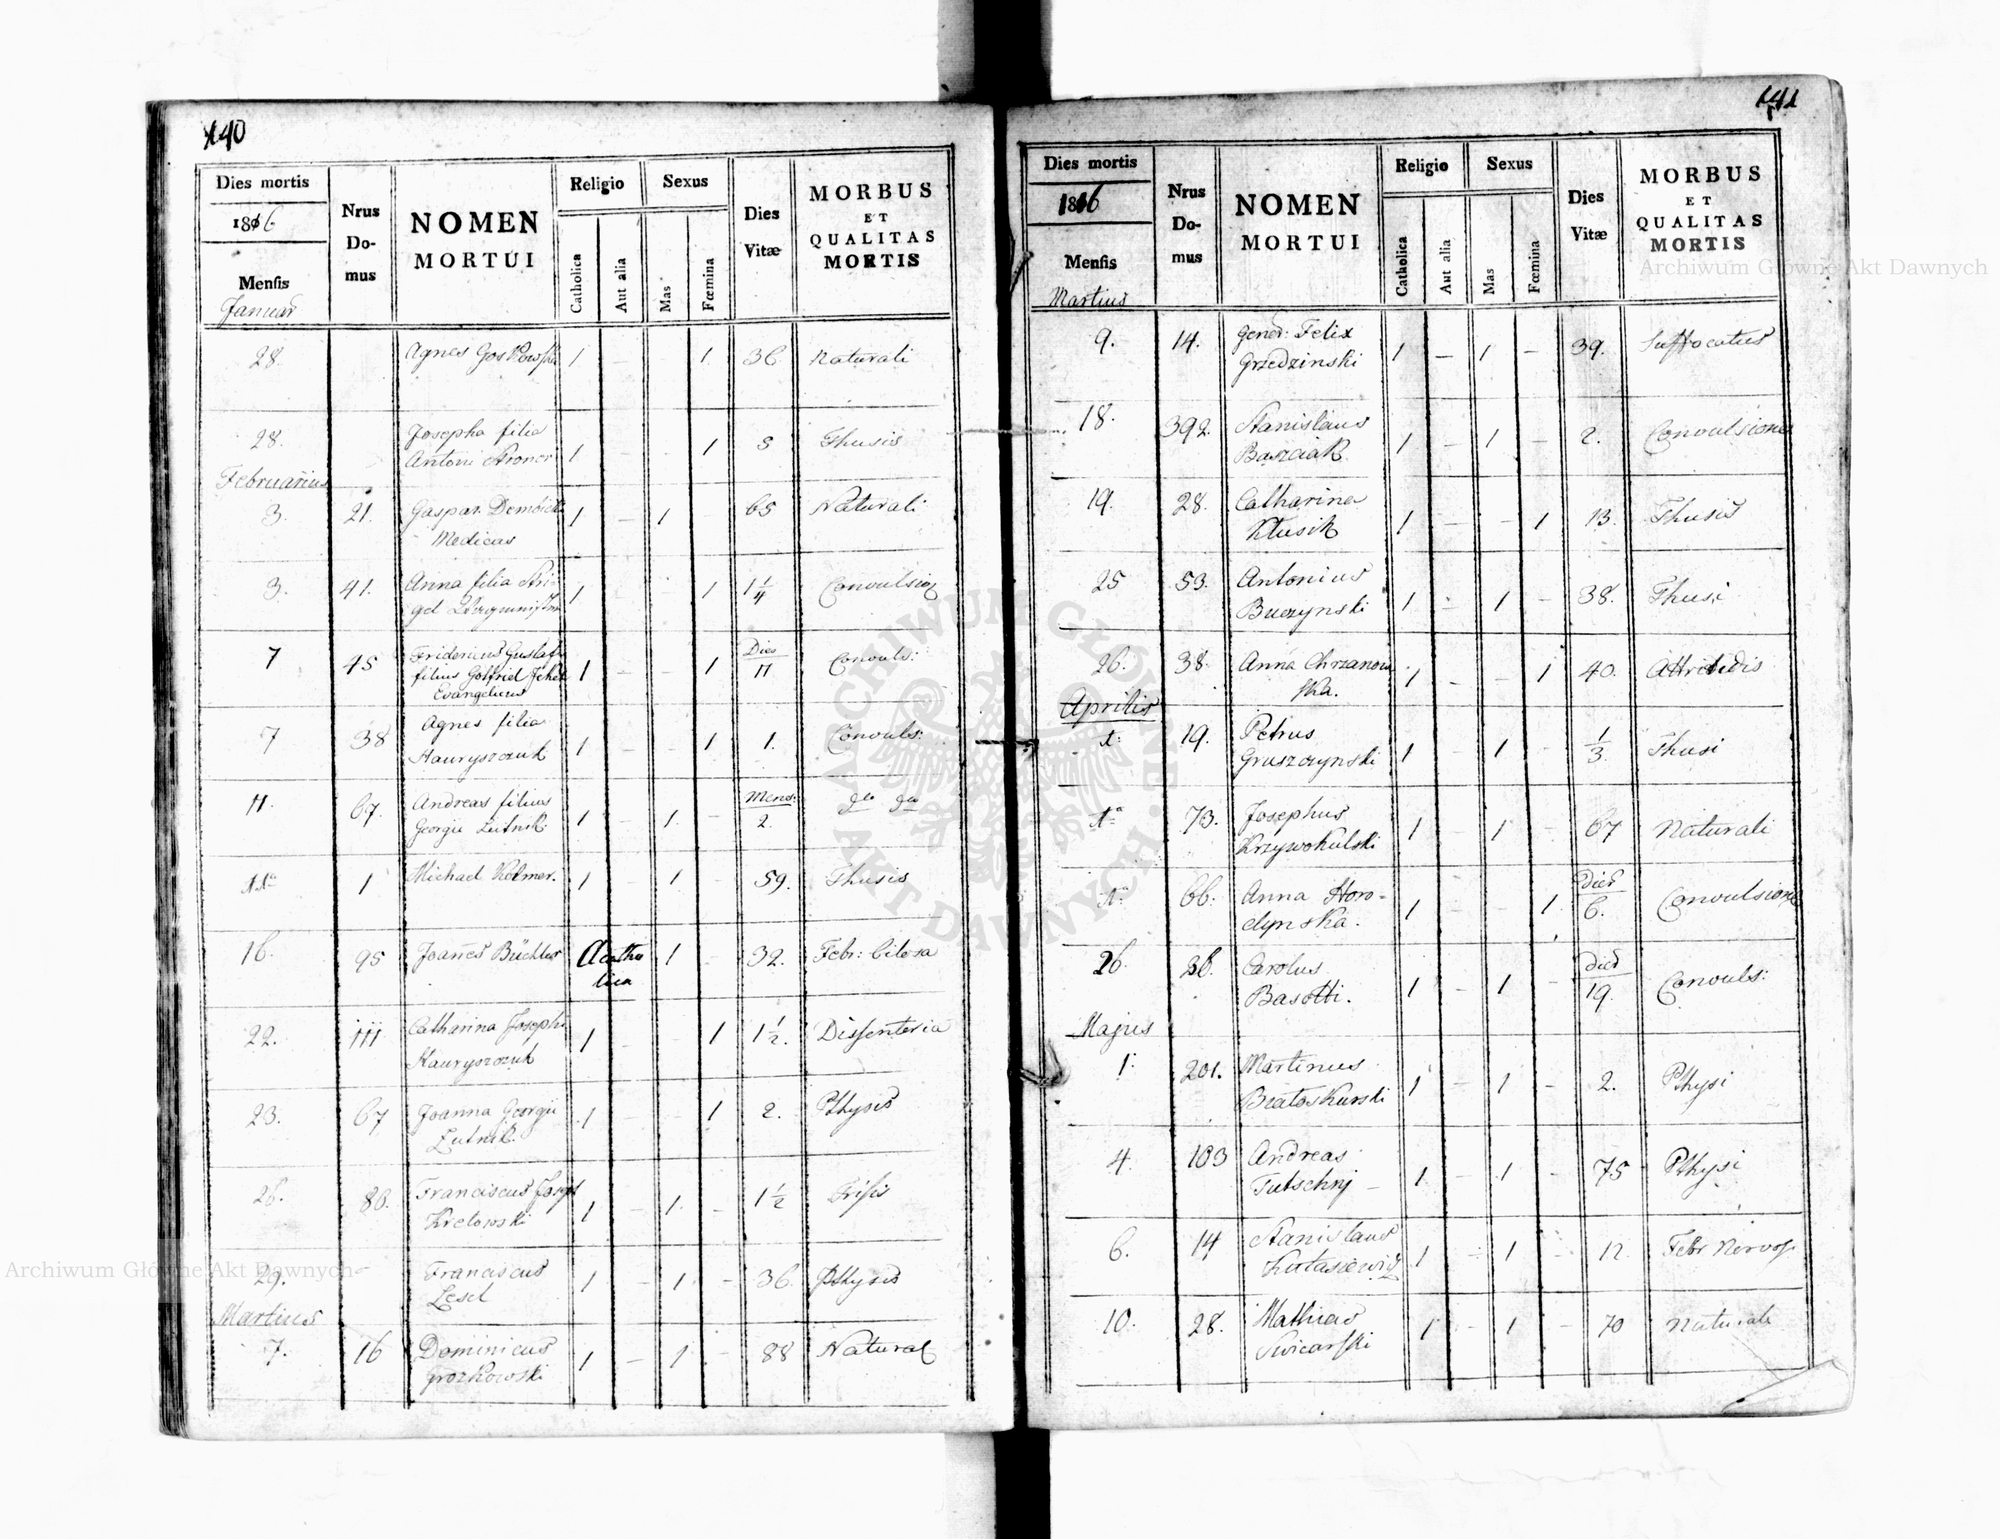 140
Dies mortis
1816
Mensis
Januar
Nrus
Do-
mus
NOMEN
MORTUI
Religio
Catholica
Aut alia
Sexus
Mas
Fœmina
Dies
Vitæ
MORBUS
ET
QUALITAS
MORTIS
28. Agnes 1 – – 1 36 Naturali
28. Josepha filia
Antoni 1 1 3 Thusis
Februarius
3. 21. Gaspar 1 – 1 65 Naturali
Medicus
3. 41. Anna filia 1 1 1 1/4 Convulsion
7 45 Fridericus Gustaf
filius Gotfried 1 1 Dies 11 Convuls:
Evangelicus
7 38 Agnes filia
Hauryszczuk 1 – – 1 1. Convuls:
11. 67. Andreas filius
Georgii Lutnik. 1 – 1. – Mens: 2.
11a 1 Michael Kelmer. 1 – 1 – 59. Thusis
16. 95 Joanes Büchler Acatho
lica 1 – 32. Febr: bilosa
22. 111 Catharina Josephi
Hauryszczuk 1 1 1 1/2. Dissenteria
23. 67 Joanna Georgii
Lutnik. 1 – – 1 2. Pthysis
26. 86. Franciscus Joseph
Kretowski 1 – 1. – 1 1/2
29. Franciscus
Lesel 1 – 1 – 36 Pthysis
Martius
7. 16 Dominicus
Grozkowski 1 – 1 – 88 Natural
141
Dies mortis
1816
Mensis
Martius
Nrus
Do-
mus
NOMEN
MORTUI
Religio
Catholica
Aut alia
Sexus
Mas
Fœmina
Dies
Vitæ
MORBUS
ET
QUALITAS
MORTIS
9. 14. Gener: Felix
Grzedzinski 1 – 1 – 39. Suffocatus
18. 392. Stanislaus
Baszciak 1 – 1 – 2. Convulsione
19. 28. Catharina
Klusik 1 – – 1 13. Thusis
25 53. Antonius
Buczynski 1 – 1 – 38. Thusi
26. 38. Anna Chrzanow
ska. 1 – – 1 40.
Aprilis
1a 19. Petrus
Gruszczynski 1 – 1 – 1/3. Thusi
1a 73. Josephus
Krzywokulski 1 – 1 – 67 Naturali
1a 66. Anna Horo-
dynska. 1 – – 1. Dies 6. Convulsione
26. 36. Carolus
Basotti. 1 – 1 – Dies 19. Convuls:
Majus
1. 201. Martinus
Białoskurski 1 – 1 – 2. Pthysi
4. 103 Andreas
Tutschnj – 1 – 1 – 75 Pthysi
6. 14 Stanislaus
1 – 1 – 12. Febr Nervos
10. 28. Mathias
1 – 1 – 70 Naturale
Archiwum Główne Akt Dawnych
Archiwum Główne Akt Dawnych
ARCHIWUM GŁÓWNE
AKT DAWNYCH